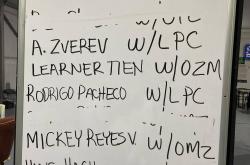 A. ZVEREV W/LPC
LEARNER TIEN W/OZM
RODRIGO PACHECO W/LPC
MICKEY REYES V. W/OMZ